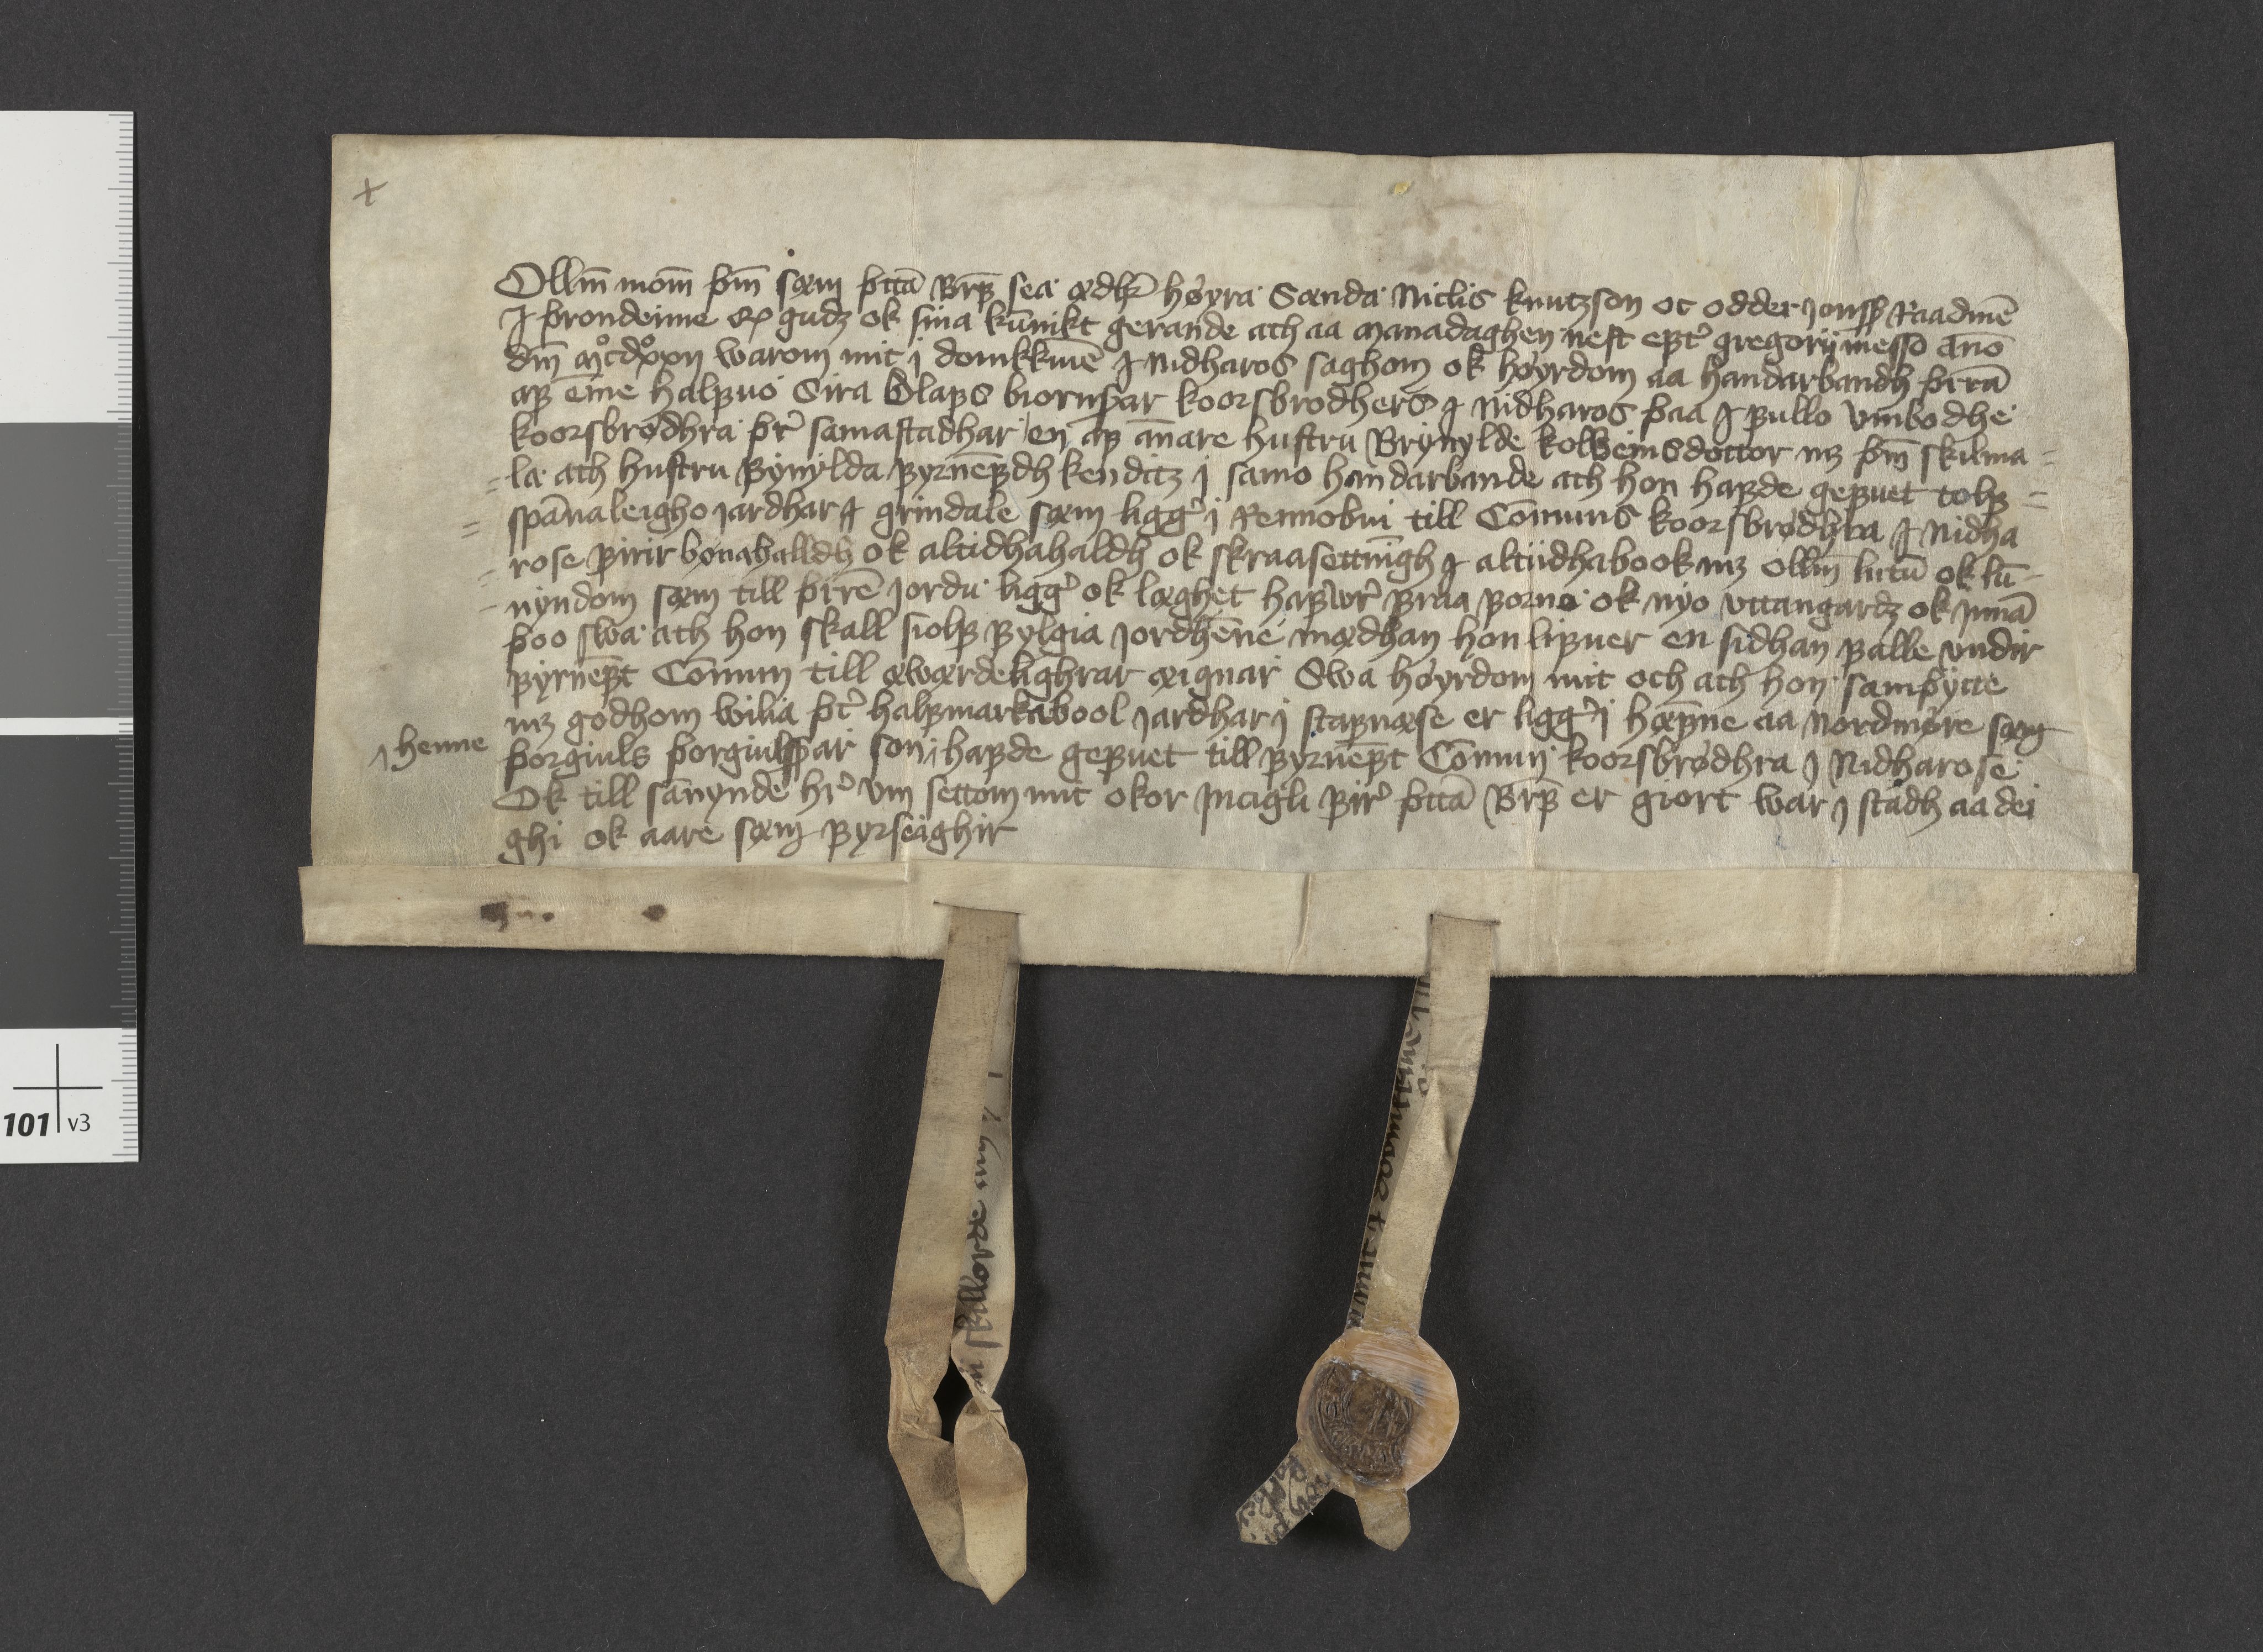 Ollm̄ mom̄ þm̄ sæm þttā Brf̄ sea ædhr̄ høyra Sænda Niclis knutzson oc odder jonss̄ Raadmē
J þrondeime q. gudz ok sina kūnikt gerande ath aa manadaghen nest eptͬ gregorij messo Ano
dm̄ mͦcdͦxxıı warom mit j domkkiuē J Nidharos saghom ok høyrdom aa handarbandh þrrā
af eine halfuo Sira Olafs biornssar koorsbrodhers J Nidharos þaa J fullo vmbodhe
koorsbrødhra þr̄ samastadhar en af annare hustru Brynylde kolbeinsdottor mz þm̄ skilma
la ath hustru Bynylda fyrnēfdh kenditz j samo handarbande ath hon hafde gefuet tolf
spānaleigho jardhar J grindale sæm liggͬ j Rennobui till Cōmuns koorsbrødhra J Nidha
rose firir bønahalldh ok altidhahaldh ok skraasettnīgh J altiidhabook mz ollm̄ lutū ok lū
nyndom sæm till þrrē jordu liggͬ ok læghet hafwͬ fraa forno ok nyo vttangardz ok jnnā
þoo swa ath hon skall siolf fylgia jordhēne mædhan hon lifuer en sidhan falle vndir
fyrnēft Cōmun till æwærdelighrar æignar Swa høyrdom mit och ath hon samþytte
mz godhom wilia þt̄ halfmarkabool jardhar j stafnæse er liggͬ j hæfne aa Nordmøre sæm
henne
þorgiuls þorgiulssar son hafde gefuet till fyrnēft Cōmun koorsbrødhra j Nidharose
Ok till sānynde hr̄ vm settom mit okor jncigli firͬ þttā Brf̄ er giort war j stadh aa dei
ghi ok aare sæm fyrseighir
skillorde
101 v3